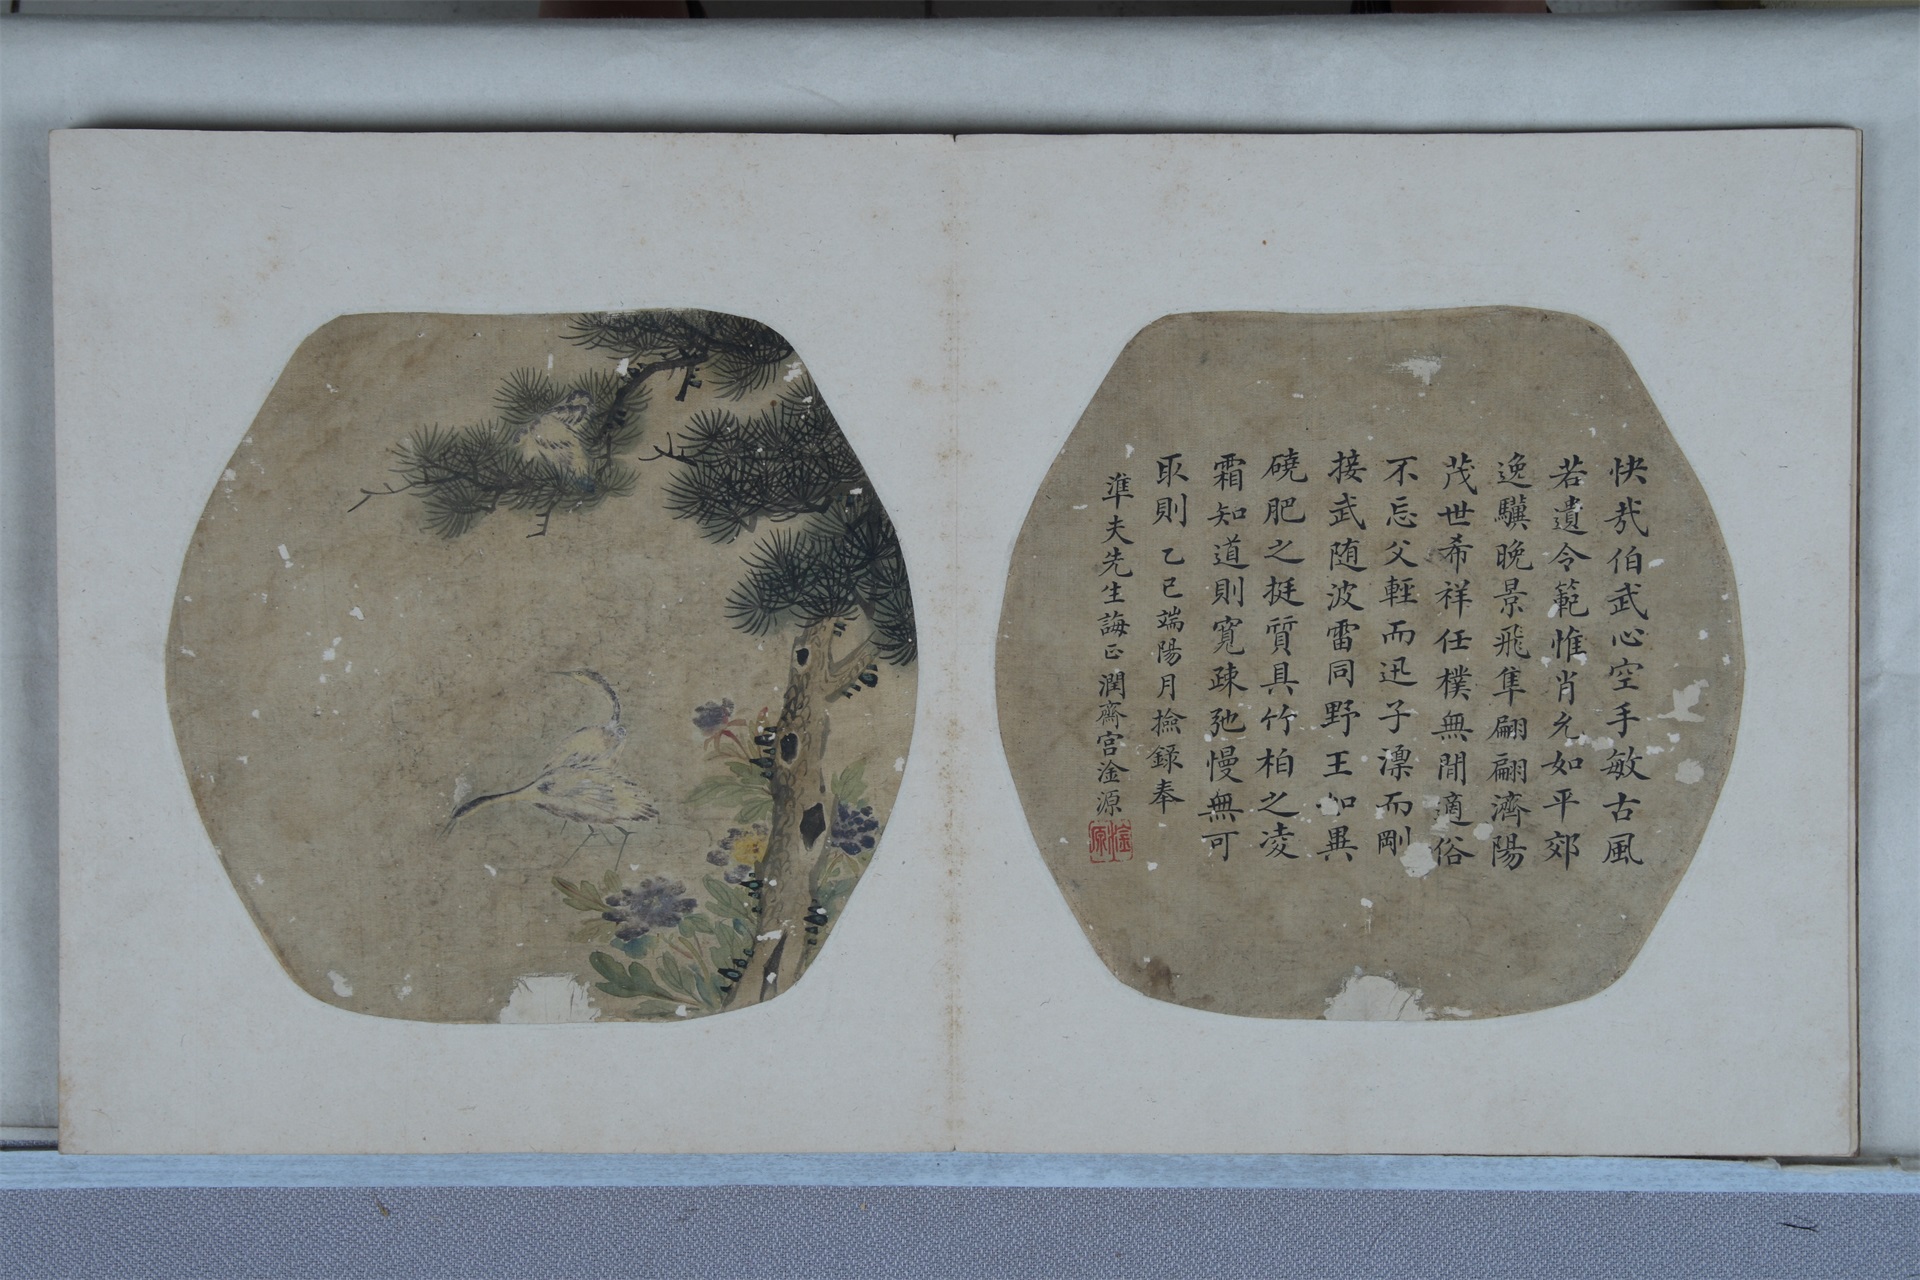 快哉伯武心空手敏古風
若遺令範惟肖允如平郊
逸驥晚景飛隼翩翩濟陽
茂世希祥任樸無閒適俗
不忘父輕而迅子凜而剛
接武随波雷同野王如異
磽肥之挺質具竹柏之凌
霜知道則寬疎弛慢無可
取則 乙巳端陽月撿錄奉
準夫先生誨正 潤齋宫淦源
淦源